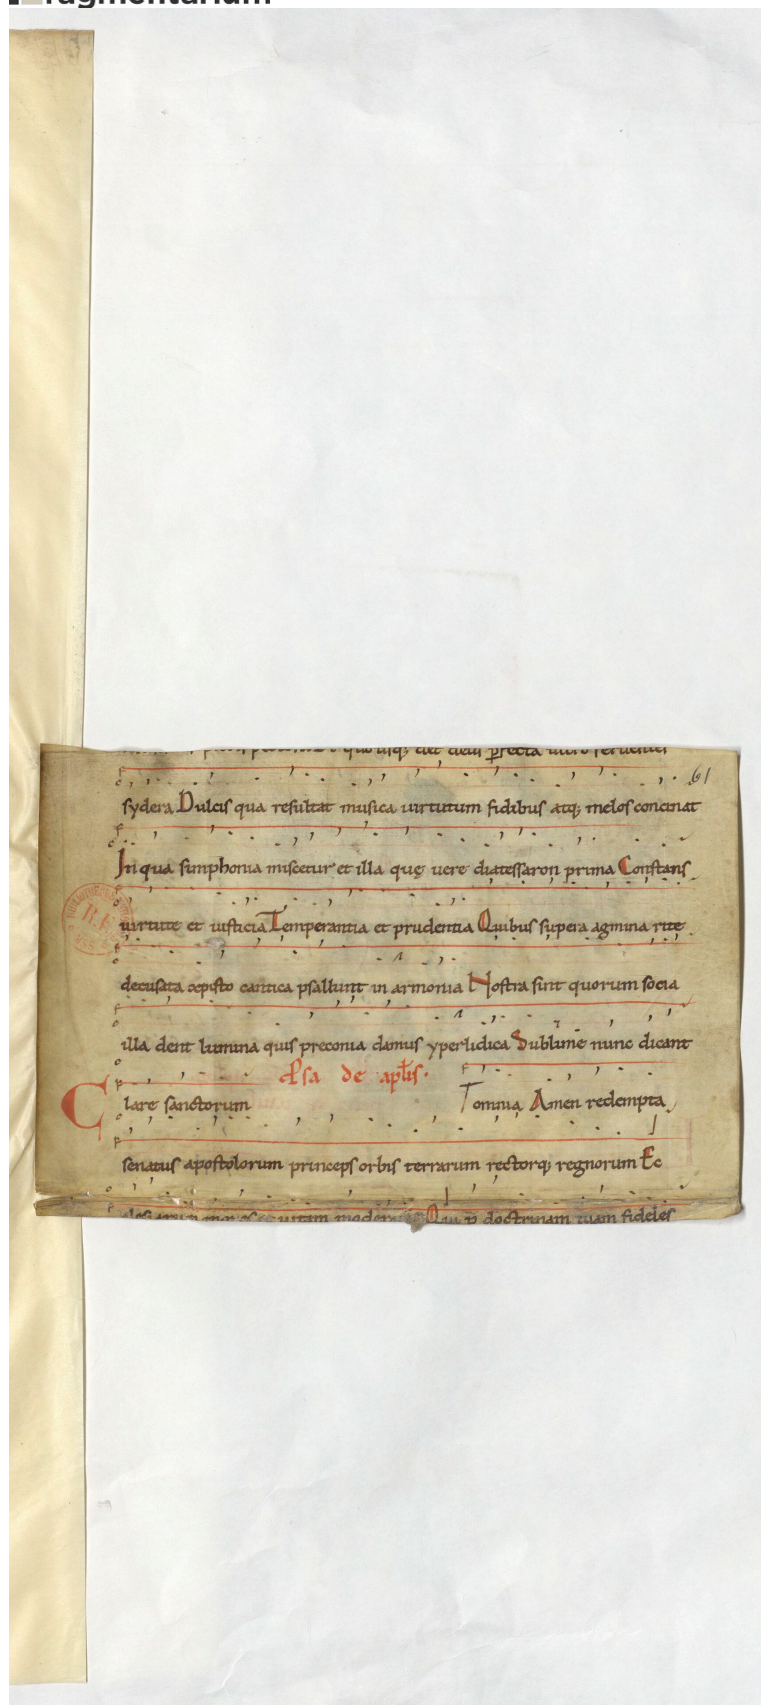 fragmentarium
61
sydera Dulcis qua resultat musica uirtutum fidibus atq; melos concinat
In qua simphonia miscetur et illa quę uere diatessaron prima Constans
uirtute et iusticia Temperantia et prudentia Quibus supera agmina rite
decusata cantica psallunt in armonia Nostra sint quorum socia
illa dent lumina quis preconia damus yperlidica Sublime nunc dicant
de aplis.
Clare sanctorum omnia Amen redempta
senatus apostolorum princeps orbis terrarum rectorq; regnorum Ec
doctrinam tuam fideles